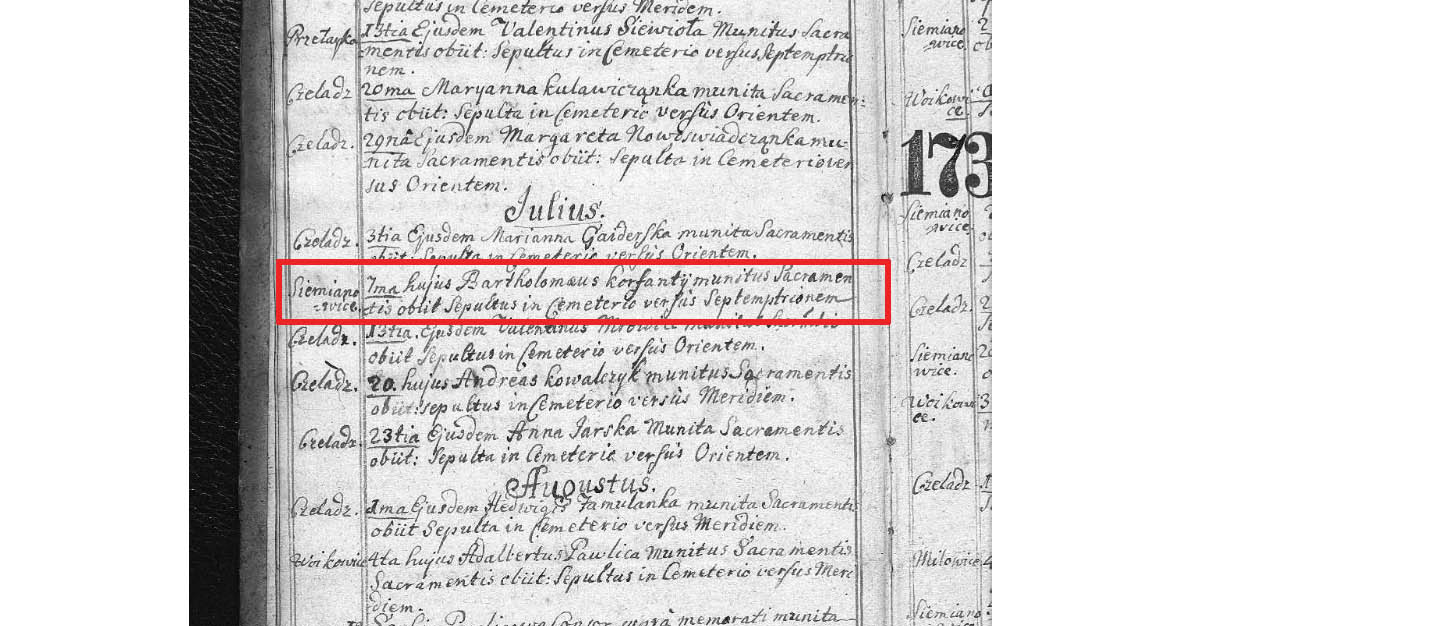 Sepultus in Cemeterio versus Meridem.
Przełayka 13tia Ejusdem Valentinus Siewiota Munitus Sacra
mentis obiit: Sepultus in Cemeterio versus Septemptrio
nem.
Czeladz 20ma Maryanna kulawiczanka munita Sacramen:
tis obiit: Sepulta in Cemeterio versùs Orientem.
Czeladz. 29nâ Ejusdem Margareta Nowoswiadczanka mu-
nita Sacramentis obiit: Sepulta in Cemeterio ver
sus Orientem.
Julius.
Czeladz. 3tia Ejusdem Marianna Gaiderska munita Sacramentis
obiit: Sepulta in Cemeterio versùs Orientem.
Siemiano 7ma hujus Bartholomæus korfantÿ munitus Sacramen
wice. tis obiit Sepultus in Cemeterio versùs Septemptrionem
Czeladz. 13tia. Ejusdem Valentinus munitus
obiit Sepultus in Cemeterio versùs Orientem.
Czeladz. 20. hujus Andreas kowalczyk munitus Sacramentis
obiit: sepultus in Cemeterio versùs Meridiem.
Czeladz. 23tia Ejusdem Anna Jarska Munita Sacramentis
obiit: Sepulta in Cemeterio versùs Orientem.
Augustus.
Czeladz. 1ma Ejusdem Hedwigis Famulanka munita Sacramentis
obiit Sepulta in Cemeterio versus Meridiem.
Woikowice 4ta hujus Adalbertus Pawlica Munitus Sacramentis
Sacramentis obiit: Sepultus in Cemeterio versùs Meri
diem.
memorati munita
Siemiano
wice.
Woikowi
ce.
173
Siemiano
wice.
Czeladz
Czeladz.
Siemiano
wice.
Woikowi
ce.
Czeladz
Milowice
Siemiano